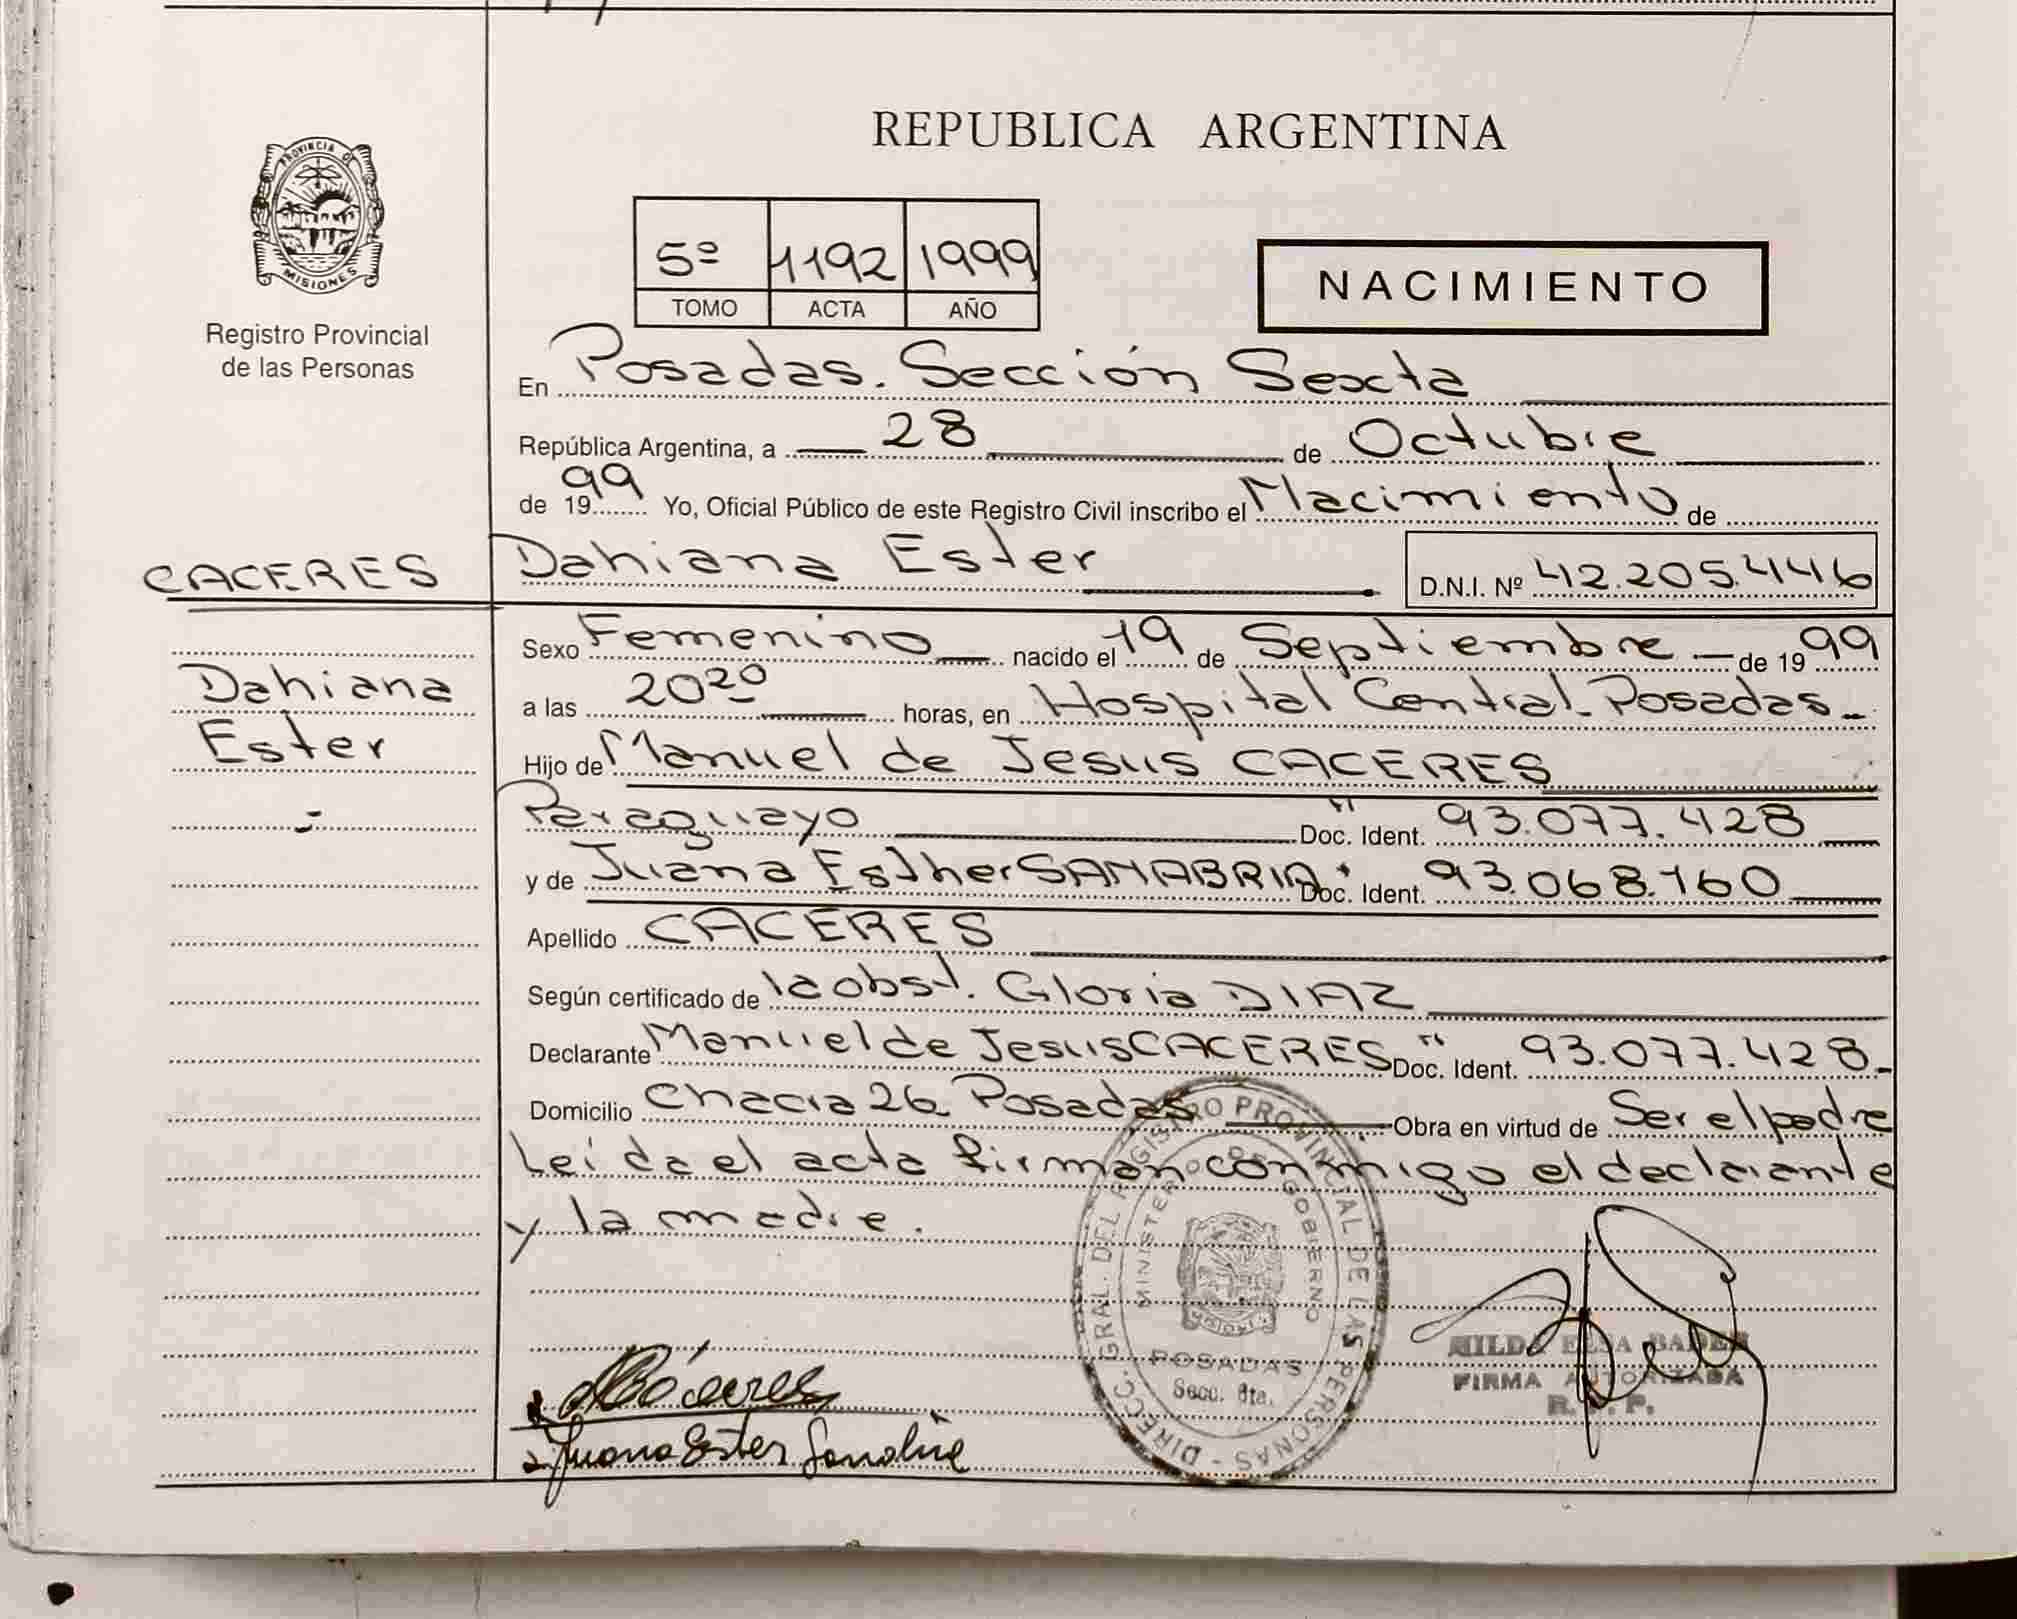 REPUBLICA ARGENTINA
PROVINCIA D
MISIONES
Registro Provincial
de las Personas
5º 1192 1999
TOMO ACTA AÑO
NACIMIENTO
En Posadas. Sección Sexta
República Argentina, a 28 de Octubre
de 1999 Yo, Oficial Público de este Registro Civil inscribo el Nacimiento de
CACERES
Dahiana Ester D.N.I. Nº 42.205.446
Sexo Femenino nacido el 19 de Septiembre de 1999
Dahiana
Ester
a las 20²⁰ horas, en Hospital Central Posadas
Hijo de Manuel de Jesus CACERES
Paraguayo Doc. Ident. 93.077.428
y de Juana Esther SANABRIA Doc. Ident. 93.068.160
Apellido CACERES
Según certificado de la obst. Gloria DIAZ
Declarante Manuel de Jesus CACERES Doc. Ident. 93.077.428
Domicilio Chacra 26 Posadas Obra en virtud de Ser el padre
Leída el acta firman conmigo el declarante
y la madre.
DIRECC. GRAL. DEL REGISTRO PROVINCIAL DE LAS PERSONAS
MINISTERIO DE GOBIERNO
POSADAS
Secc. 6ta.
HILDA ELSA BADER
FIRMA AUTORIZADA
R. P. P.
Cáceres
Juana Ester